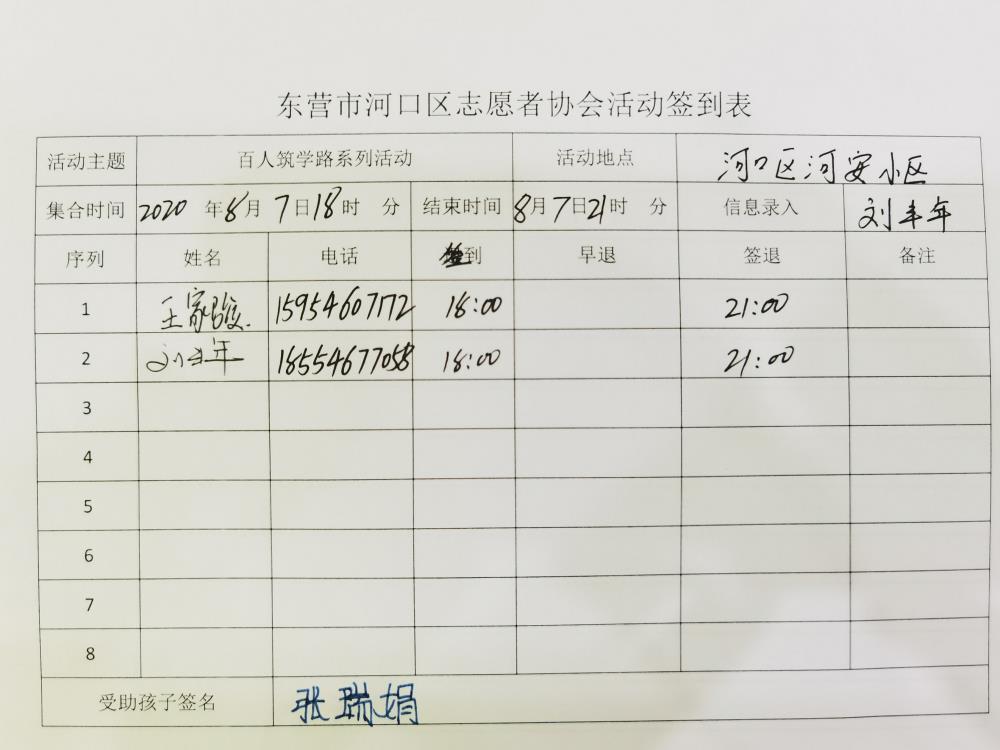 东营市河口区志愿者协会活动签到表
活动主题 百人筑学路系列活动 活动地点 河口区河安小区
集合时间 2020年8月7日18时 分 结束时间 8月7日21时 分 信息录入 刘丰年
序列 姓名 电话 签到 早退 签退 备注
1 王家骏 15954607172 18:00 21:00
2 刘丰年 18554677058 18:00 21:00
3
4
5
6
7
8
受助孩子签名 张瑞娟